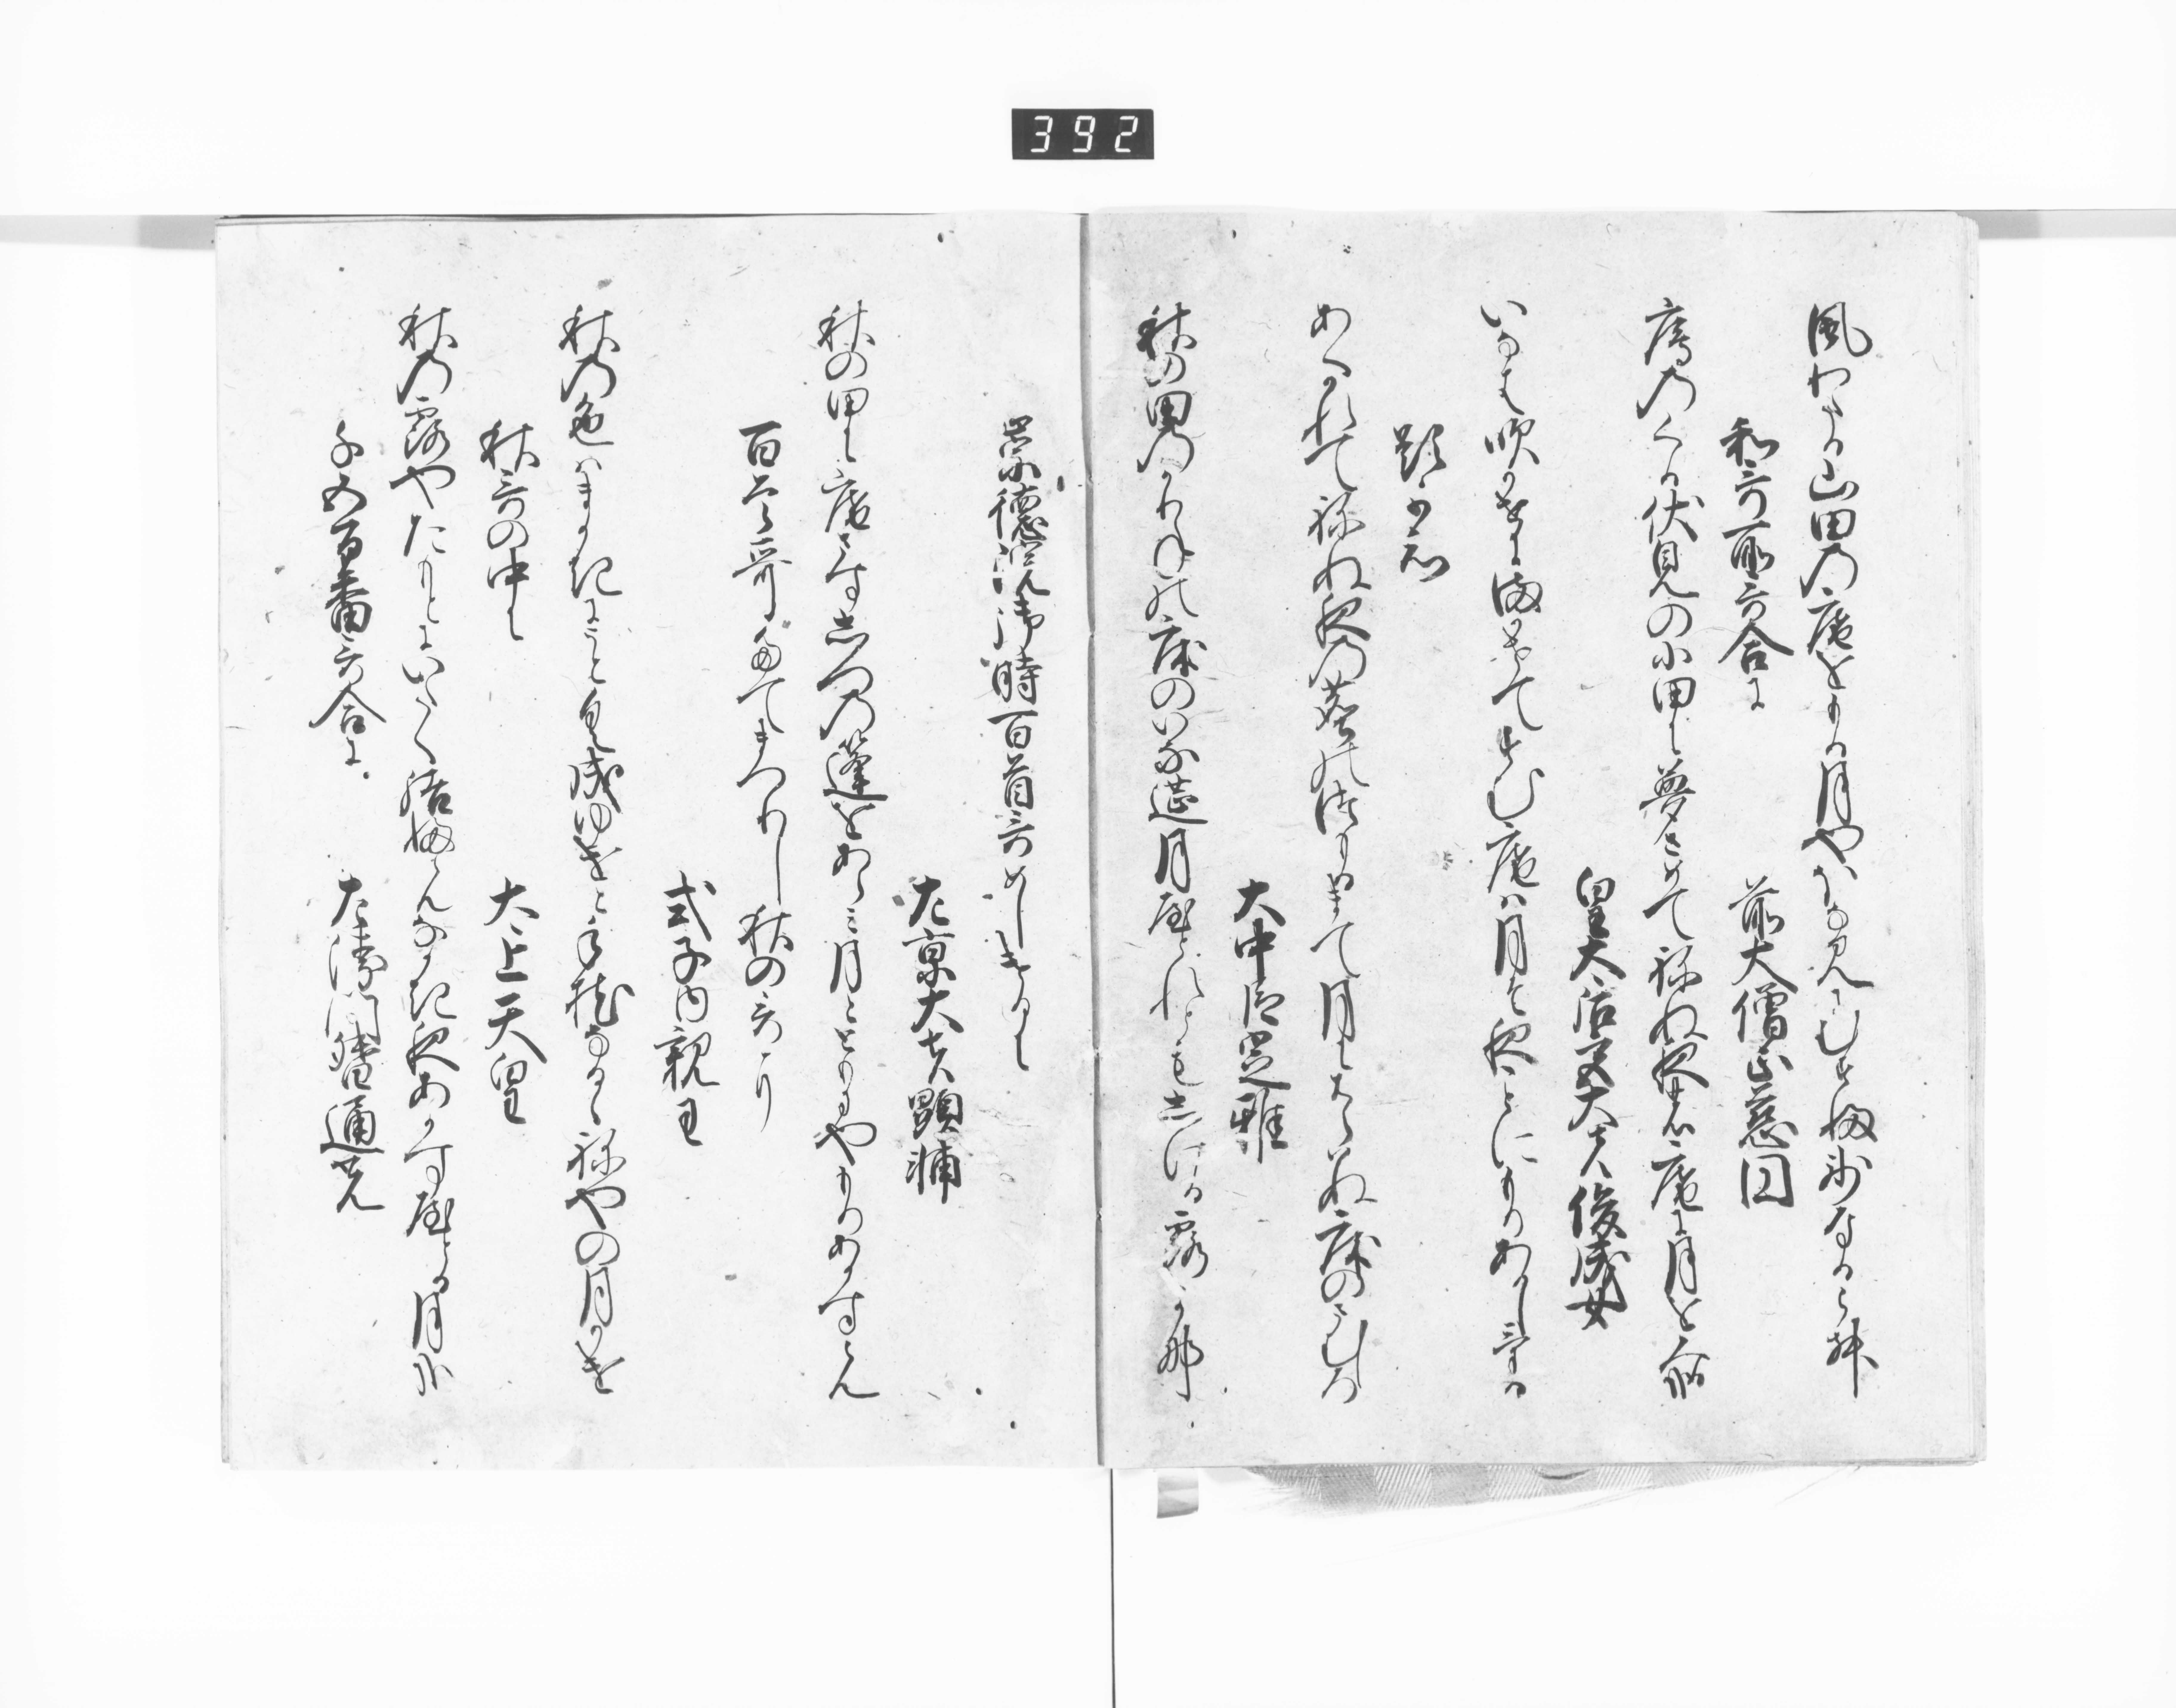 392
風わたる山田の庵をもる月やほなみにむすふ氷なるらむ
和哥所哥合に
前大僧正慈円
鴈のくる伏見の小田に夢さめてねぬ夜の庵に月を
皇太后宮大夫俊成女
いなは吹かせにまかせてすむ庵は月そ夜ことにもりあかしける
題しらす
あくかれてねぬ夜の塵のつもるまて月にはらはぬ床のさむしろ
大中臣定雅
秋の田のかりねの床のいな莚月やとれともしける露かな
崇徳院御時百首哥めしけるに
左京大夫顕輔
秋の田に庵さすしつの苫をあらみ月とともにやもりあかすらん
百首哥たてまつりし秋の哥に
式子内親王
秋の色はまかきにうとく成ゆけと手枕なるゝねやの月かけ
秋哥の中に
太上天皇
秋の露やたもとにいたく結ふらんなかき夜あかすやとる月かな
千五百番哥合に
左衛門督通光